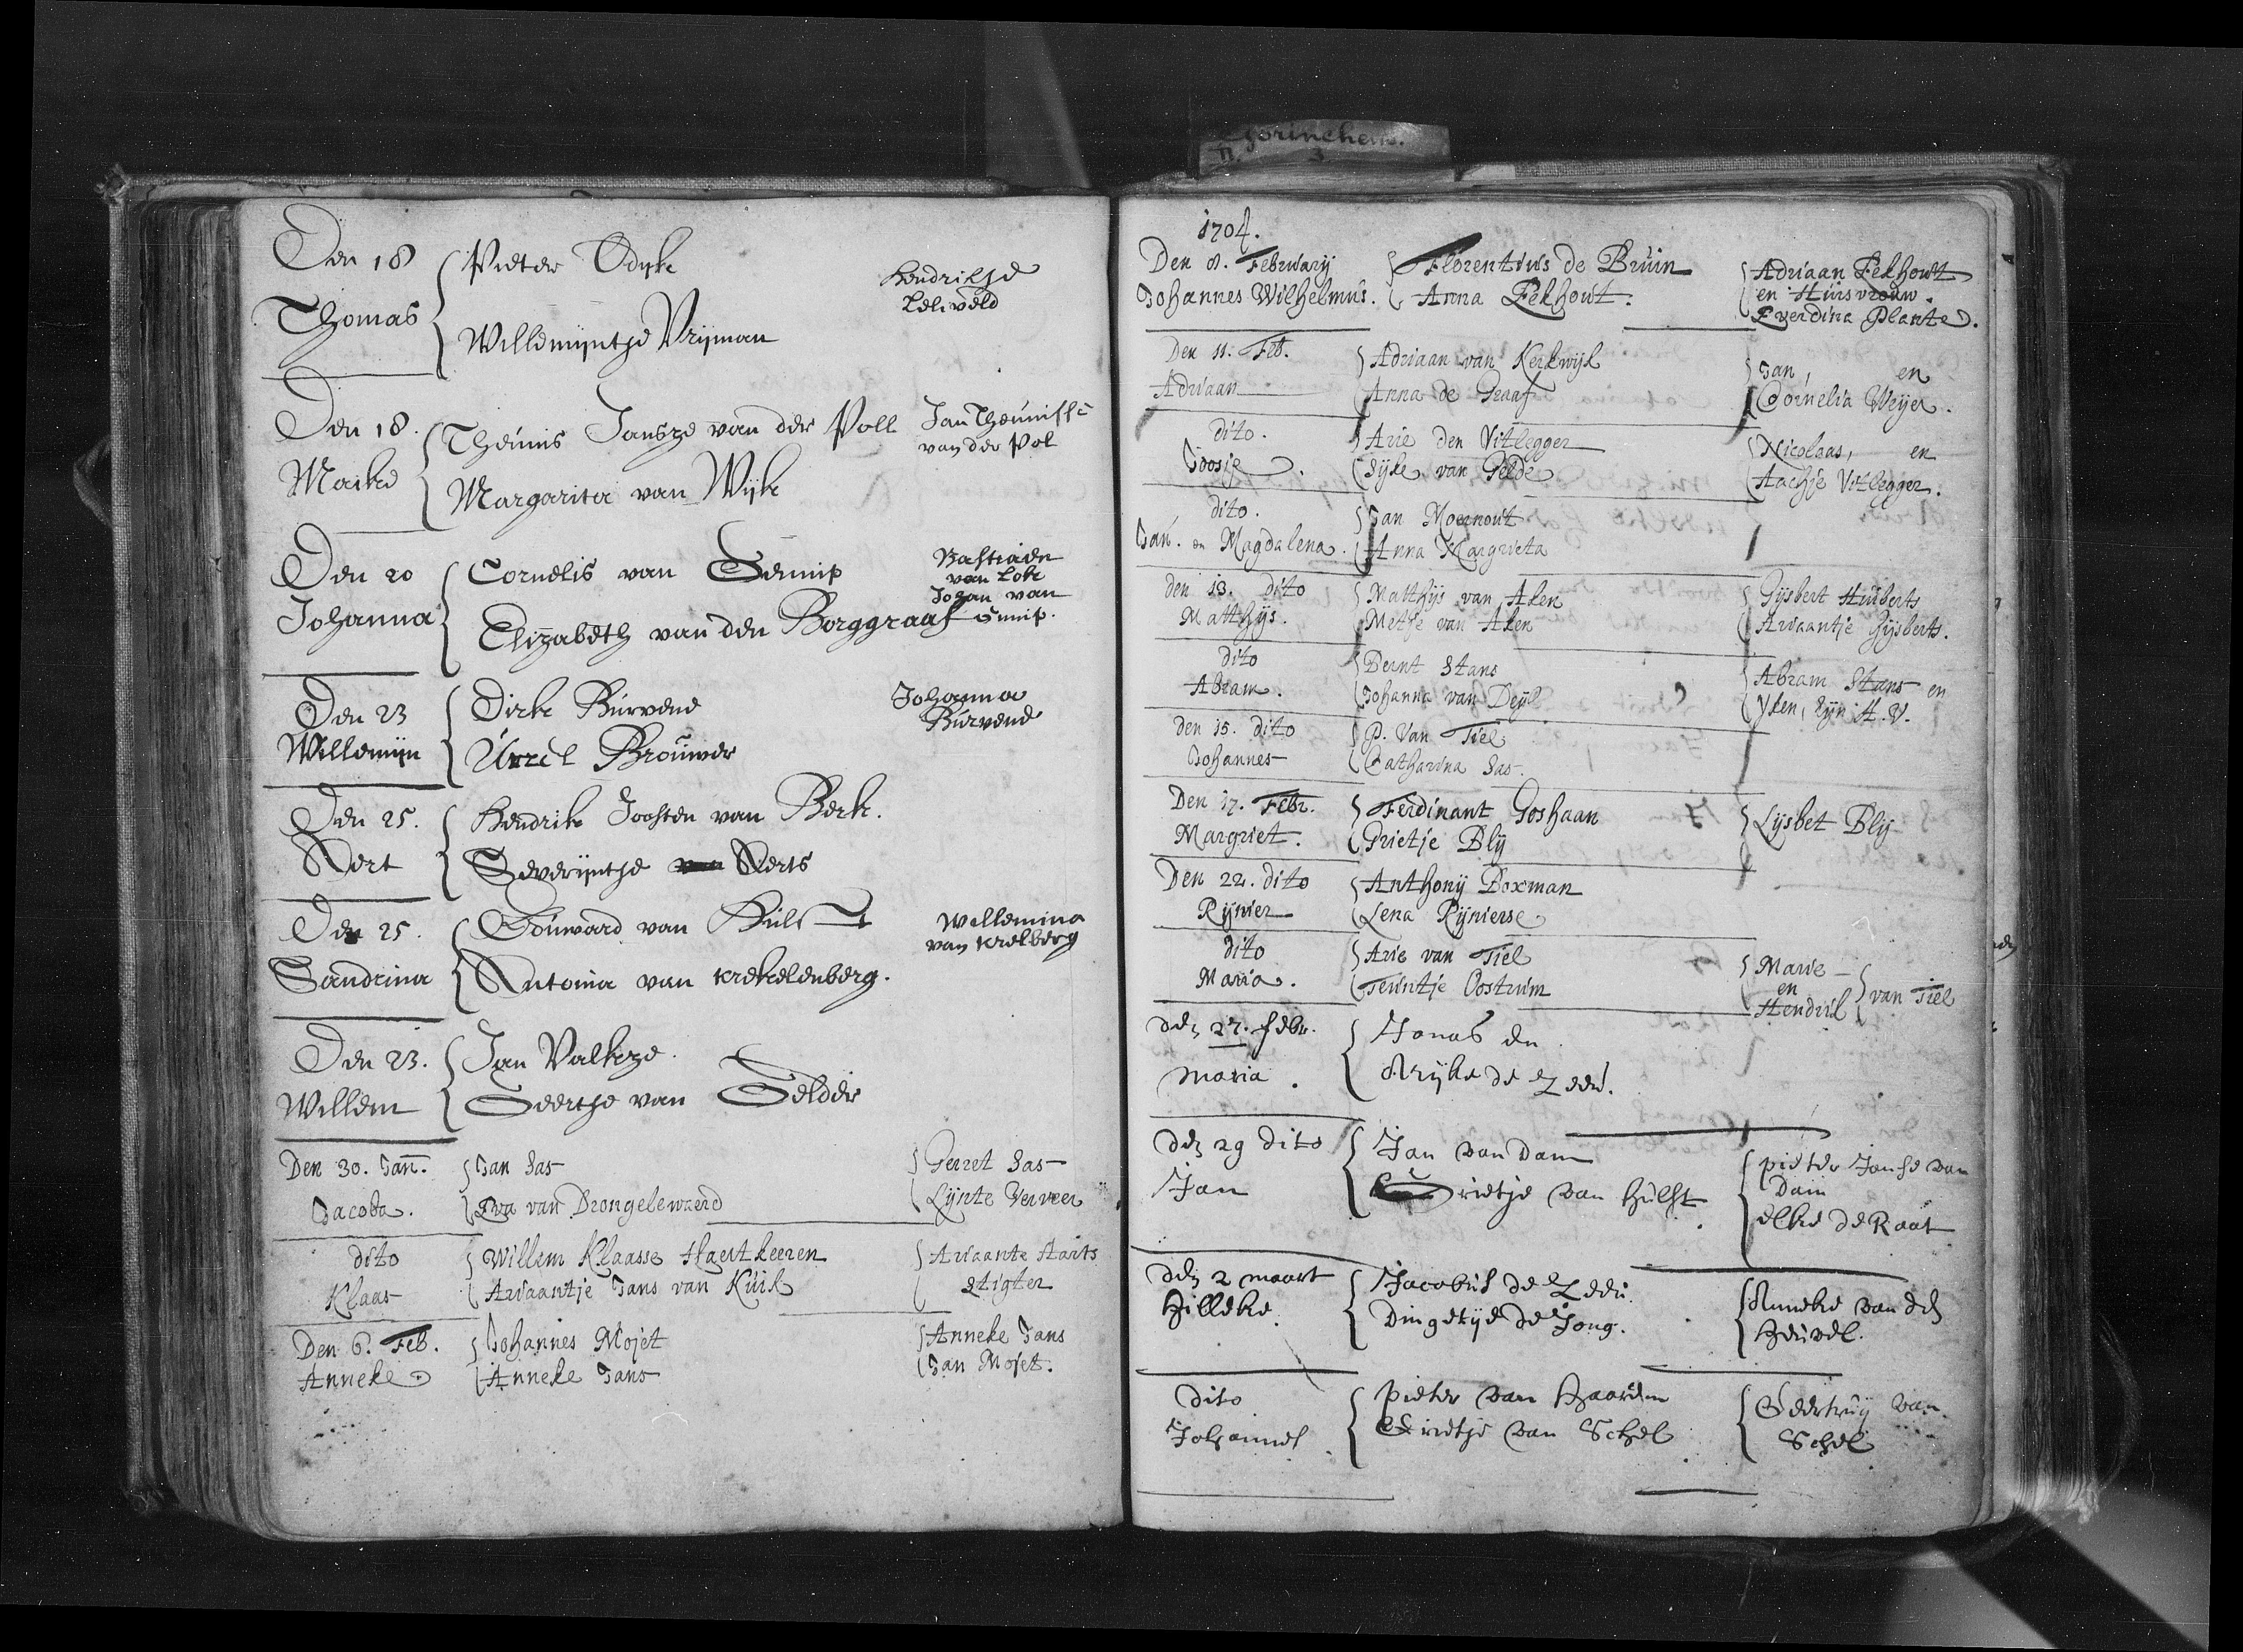 Gorinchem.
11. 3
Den 18
Pieter Odijk
Hendrikse
Leliveld
Thomas
Willemijntje Vrijman
Den 18.
Theunis Jansze van der Poll
Jan Theunisse
van der Pol
Maike
Margarita van Wijk
Den 20
Cornelis van Gennip
Bastiaen
van Lok
Johan van
Gennip.
Johanna
Elizabeth van den Borggraaf
Den 23
Dirk Burvend
Johanna
Burvend
Willemijn
Urzel Brouwer
Den 25.
Hendrik Joosten van Berk.
Aert
Severijntje Aerts
Den 25.
Eduward van Hulst
Willemina
van Krekelberg
Sandrina
Antonia van Krekelenberg.
Den 23.
Jan Valkze.
Willem
Geertje van Gelder
Den 30. Jan.
Jan Sas
Gerret Sas
Jacoba.
Eva van Drongelewaerd
Lijnte Verveer
dito
Willem Klaasse Haerkeeren
Ariaante Aarts
Klaas
Ariaantje Jans van Kuik
Stigter
Den 6. Feb.
Johannes Mojet
Anneke Jans
Anneke
Anneke Jans
Jan Mojet.
1704.
Den 8. February
Florentius de Bruin
Adriaan Eekhout
Johannes Wilhelmus.
Anna Eekhout.
en Huisvrouw.
Everdina Plante.
Den 11. Feb.
Adriaan van Kerkwijk
Jan, en
Adriaan
Anna de Graaf
Cornelia Weyer.
dito.
Arie den Uitlegger
Nicolaas, en
Joosje.
Sijke van Gelde
Aachje Uitlegger.
dito.
Jan Moernout
Jan. en Magdalena.
Anna Margrieta
den 13. dito
Matthys van Aken
Gijsbert Huiberts
Matthijs.
Metje van Aken
Ariaantje Gijsberts.
dito
Bernt Stans
Abram Stans en
Abram.
Johanna van Deyl
Yken, Zijn H. V.
den 15. dito
P. Van Tiel
Johannes
Catharina Sas.
Den 17. Febr.
Ferdinant Goshaan
Lijsbet Blij
Margriet.
Grietje Blij
Den 22. dito
Anthonij Boxman
Rijnier
Lena Rijnierse
dito
Arie van Tiel
Marie
en
van Tiel
Maria.
Teuntje Oostrum
Hendrik
den 27. febr.
Jonas en
Maria.
Rijke de Zeeu.
den 29 dito
Jan van Dam
pieter Janse van
Dam
Jan
rietje van Hulst
elke de Raat
den 2 maart
Jacobus de Zeeu.
Anneke van den
Hilleke.
Dingetije de Jong.
Heuvel.
dito
pieter van Haarden
Geertruij van
Johannes
Grietje van Schel
Schel